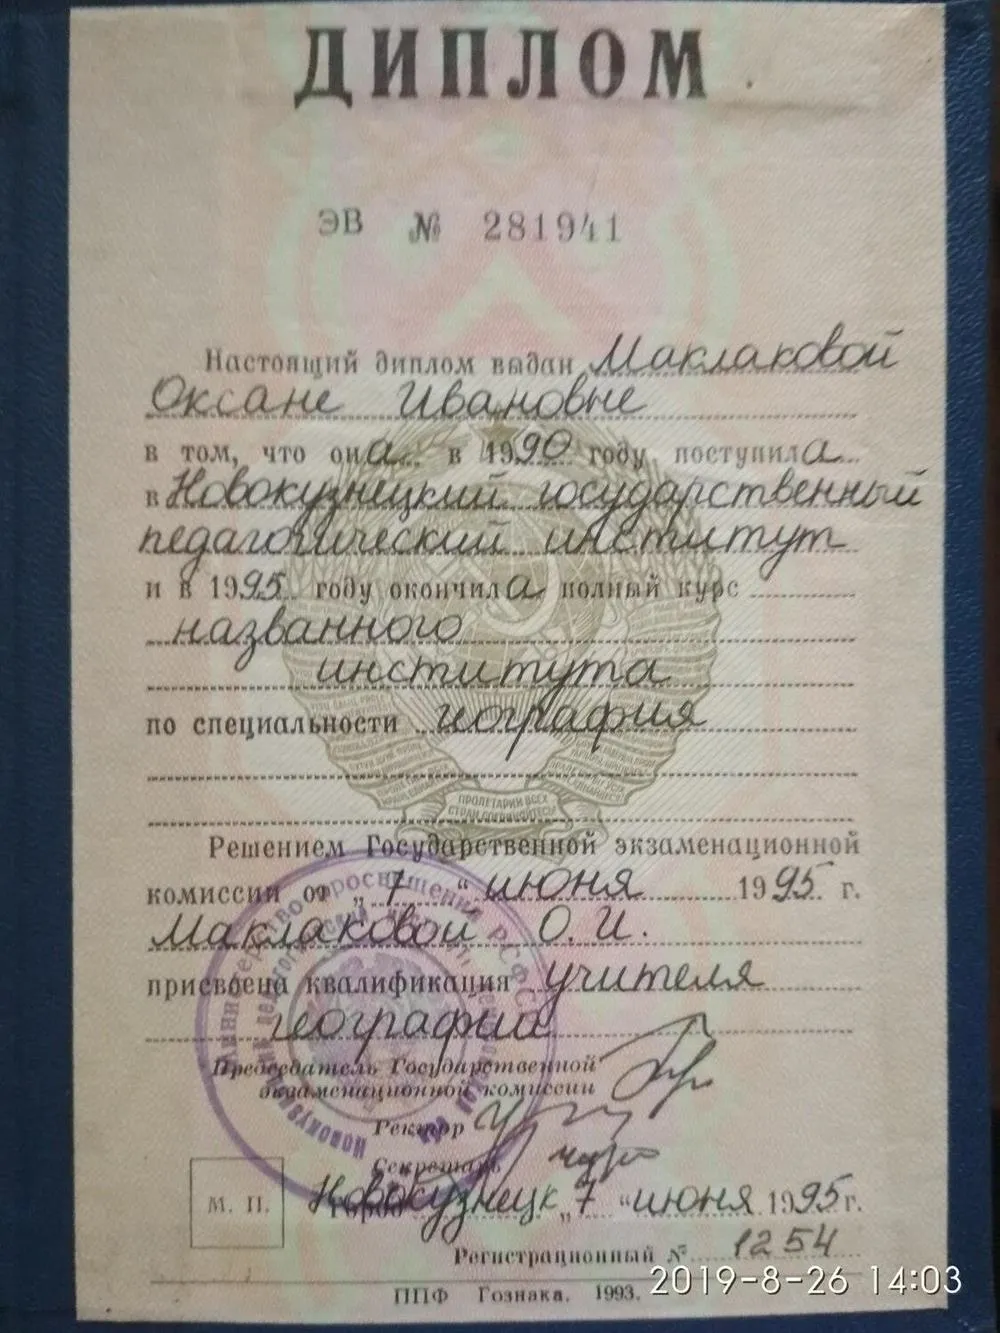 ДИПЛОМ
ЭВ № 281941
Настоящий диплом выдан Маклаковой
Оксане Ивановне
в том, что она в 1990 году поступила
в Новокузнецкий государственный
педагогический институт
и в 1995 году окончила полный курс
названного
института
по специальности география
ПРОЛЕТАРИИ ВСЕХ
СТРАН СОЕДИНЯЙТЕСЬ
Решением Государственной экзаменационной
комиссии от „7“ июня 1995 г.
Маклаковой О.И.
присвоена квалификация учителя
географии
Председатель Государственной
экзаменационной комиссии
Ректор
Секретарь
М. П.
Город Новокузнецк „7“ июня 1995 г.
Регистрационный № 1254
ППФ Гознака. 1993.
2019-8-26 14:03
Министерство просвещения РСФСР